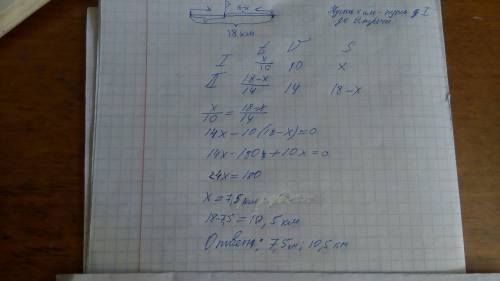 Пусть x км - путь I
до встречи
18 км
t V S
I x/10 10 x
II 18-x/14 14 18-x
x/10 = 18-x/14
14x-10(18-x)=0
14x-180+10x=0
24x=180
x=7,5 км
18-7,5=10,5 км
Ответ: 7,5км; 10,5 км